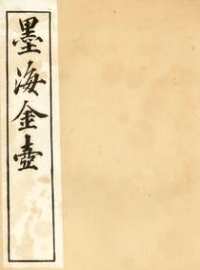 墨海金壺